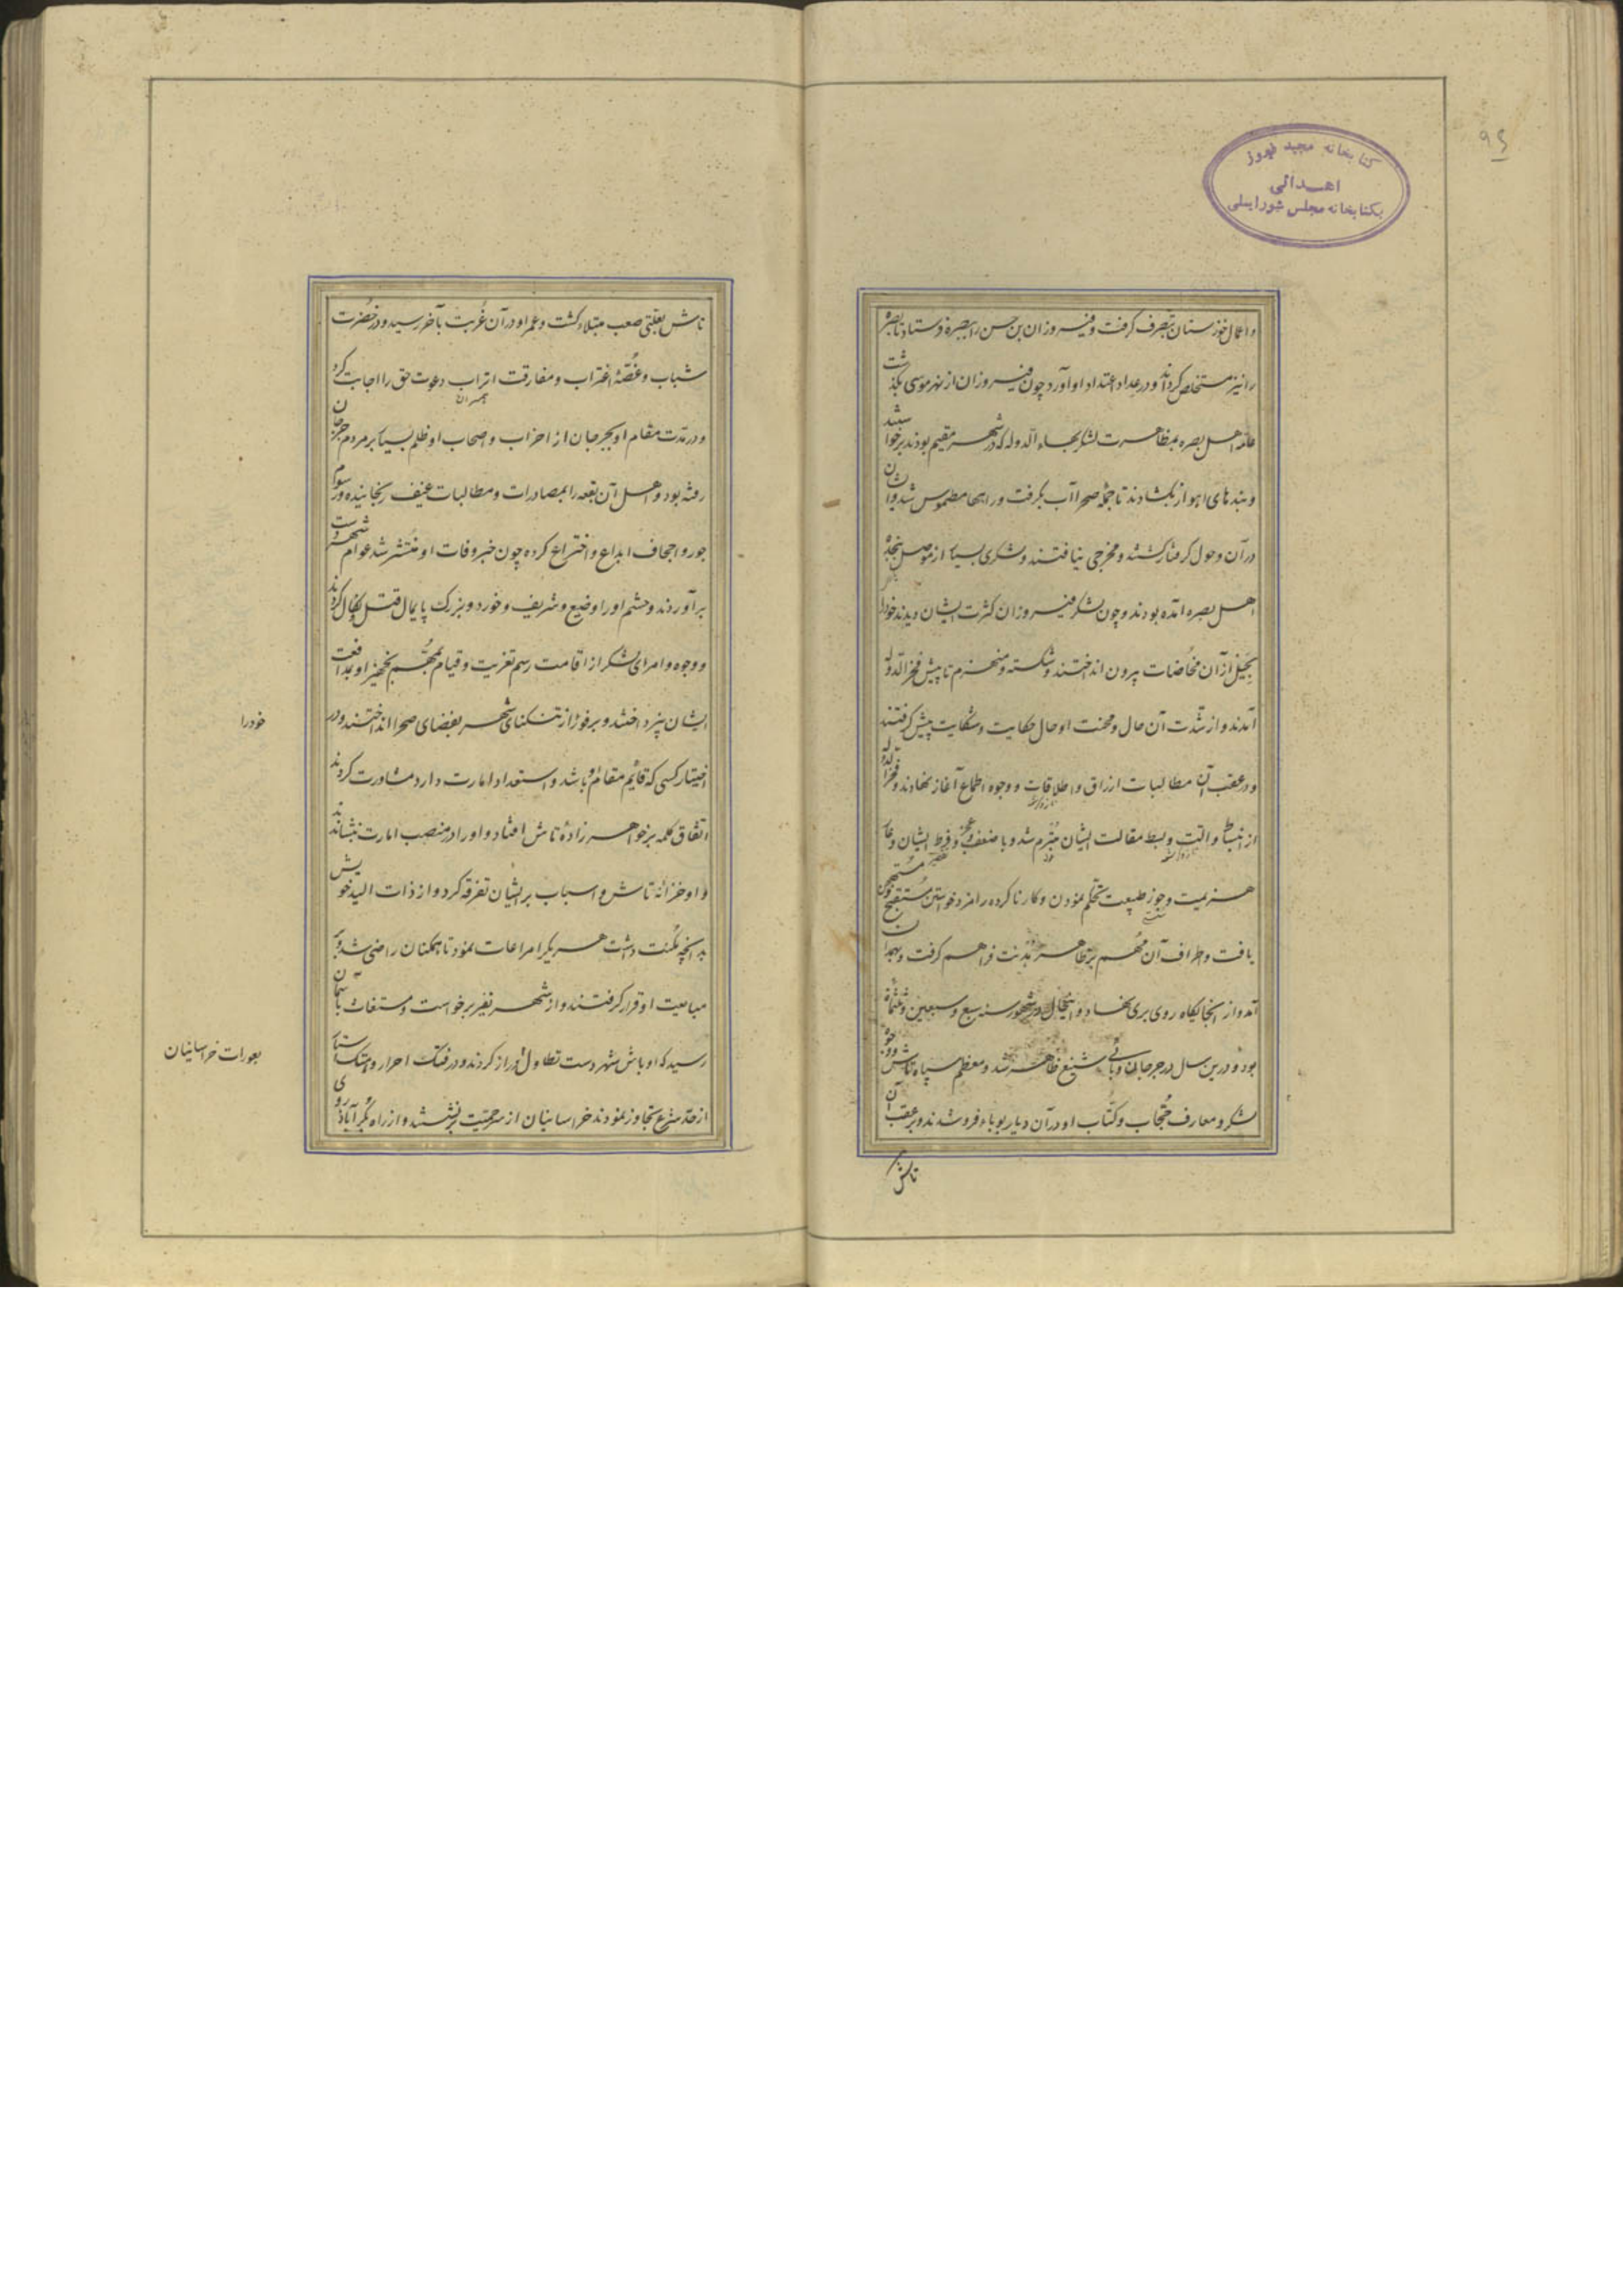 ۹٤
کتابخانه مجید فیروز
اهدائی
بکتابخانه مجلس شورایملی
و اعمال خوزستان بتصرف گرفت و فیروزان بن حسن را ببصره فرستاد تا بصره
را نیز مستخلص کرداند و در عداد اعتداد او آورد چون فیروزان از نهر موسی بگذشت
عامه اهل بصره بمظاهرت لشکر بهاء الدوله که در شهر مقیم بودند برخواستند
و بندهای اهواز بکشادند تا جمله صحرا آب بگرفت و راهها مطموس شد و ایشان
در آن وحول گرفتار گشتند و مخرجی نیافتند و لشکری بسیار از موصل بنجده
اهل بصره آمده بودند و چون لشکر فیروزان کثرت ایشان دیدند خود را
بحیل از آن مخاضات بیرون انداختند و شکسته و منهزم تا پیش فخر الدوله
آمدند و از شدت آن حال و محنت او حال حکایت و شکایت پیش گرفتند
و در عقب آن مطالبات ارزاق و اطلاقات و وجوه اطماع آغاز نهادند و فخر الدوله
از و بسط مقالت ایشان متبرم شد و با ضعف و عجز و فرط ایشان و
هزیمت و طبیعت تحکم نمودن و کار ناکرده را مزد خواستن مستقبح
یافت و اطراف آن مهم بر ظاهر هدنت فراهم گرفت و بهمدان
آمد و از آنجایگاه روی بری نهاد و اینحال در شهور سنه سبع و سبعین و ثلثمائه
بود و درین سال در جرجان وبائی شنیع ظاهر شد و معظم سپاه تاش و وجوه
لشکر و معارف حجاب و کتاب او در آن دیار بوباء فرو شدند و بر عقب آن
تاش
تاش بعلتی صعب مبتلاء کشت و عمر او در آن غربت بآخر رسید و در خضرت
شباب و غصه اغتراب و مفارقت اتراب دعوت حق را اجابت کرد
همسران
و در مدت مقام او بجرجان از احزاب و اصحاب او ظلم بسیار بر مردم جرجان
رفته بود و اهل آن بقعه را بمصادرات و مطالبات عنیف رنجانیده و رسوم
جور و اجحاف ابداع و اختراع کرده چون خبر وفات او منتشر شد عوام شهر دست
برآوردند و حشم او را وضیع و شریف و خورد و بزرگ پایمال قتل و نکال کردند
و وجوه و امرای لشکر از اقامت رسم تعزیت و قیام بمهم تجهیز او بمدافعت
ایشان پرداختند و بر فور از تنکنای شهر بفضای صحرا انداختند و در
خود را
اختیار کسی که قائم مقام او باشد و استعداد امارت دارد مشاورت کردند
اتفاق کلمه بر خواهرزاده تاش افتاد و او را در منصب امارت بنشاندند
و او خزانه تاش و اسباب بر ایشان تفرقه کرد و از ذات الید خویش
بدانچه مکنت داشت هر یک را مراعات نمود تا همکنان راضی شدند و بر
مبایعت او قرار گرفتند و از شهر نفیر برخواست و مستغاث بآسمان
رسید که اوباش شهر دست تطاول دراز کردند و در فتک احرار و هتک استار
بعورات خراسانیان
از حد شرع تجاوز نمودند خراسانیان از سر حمیت برنشستند و از راه بکرآباد روی